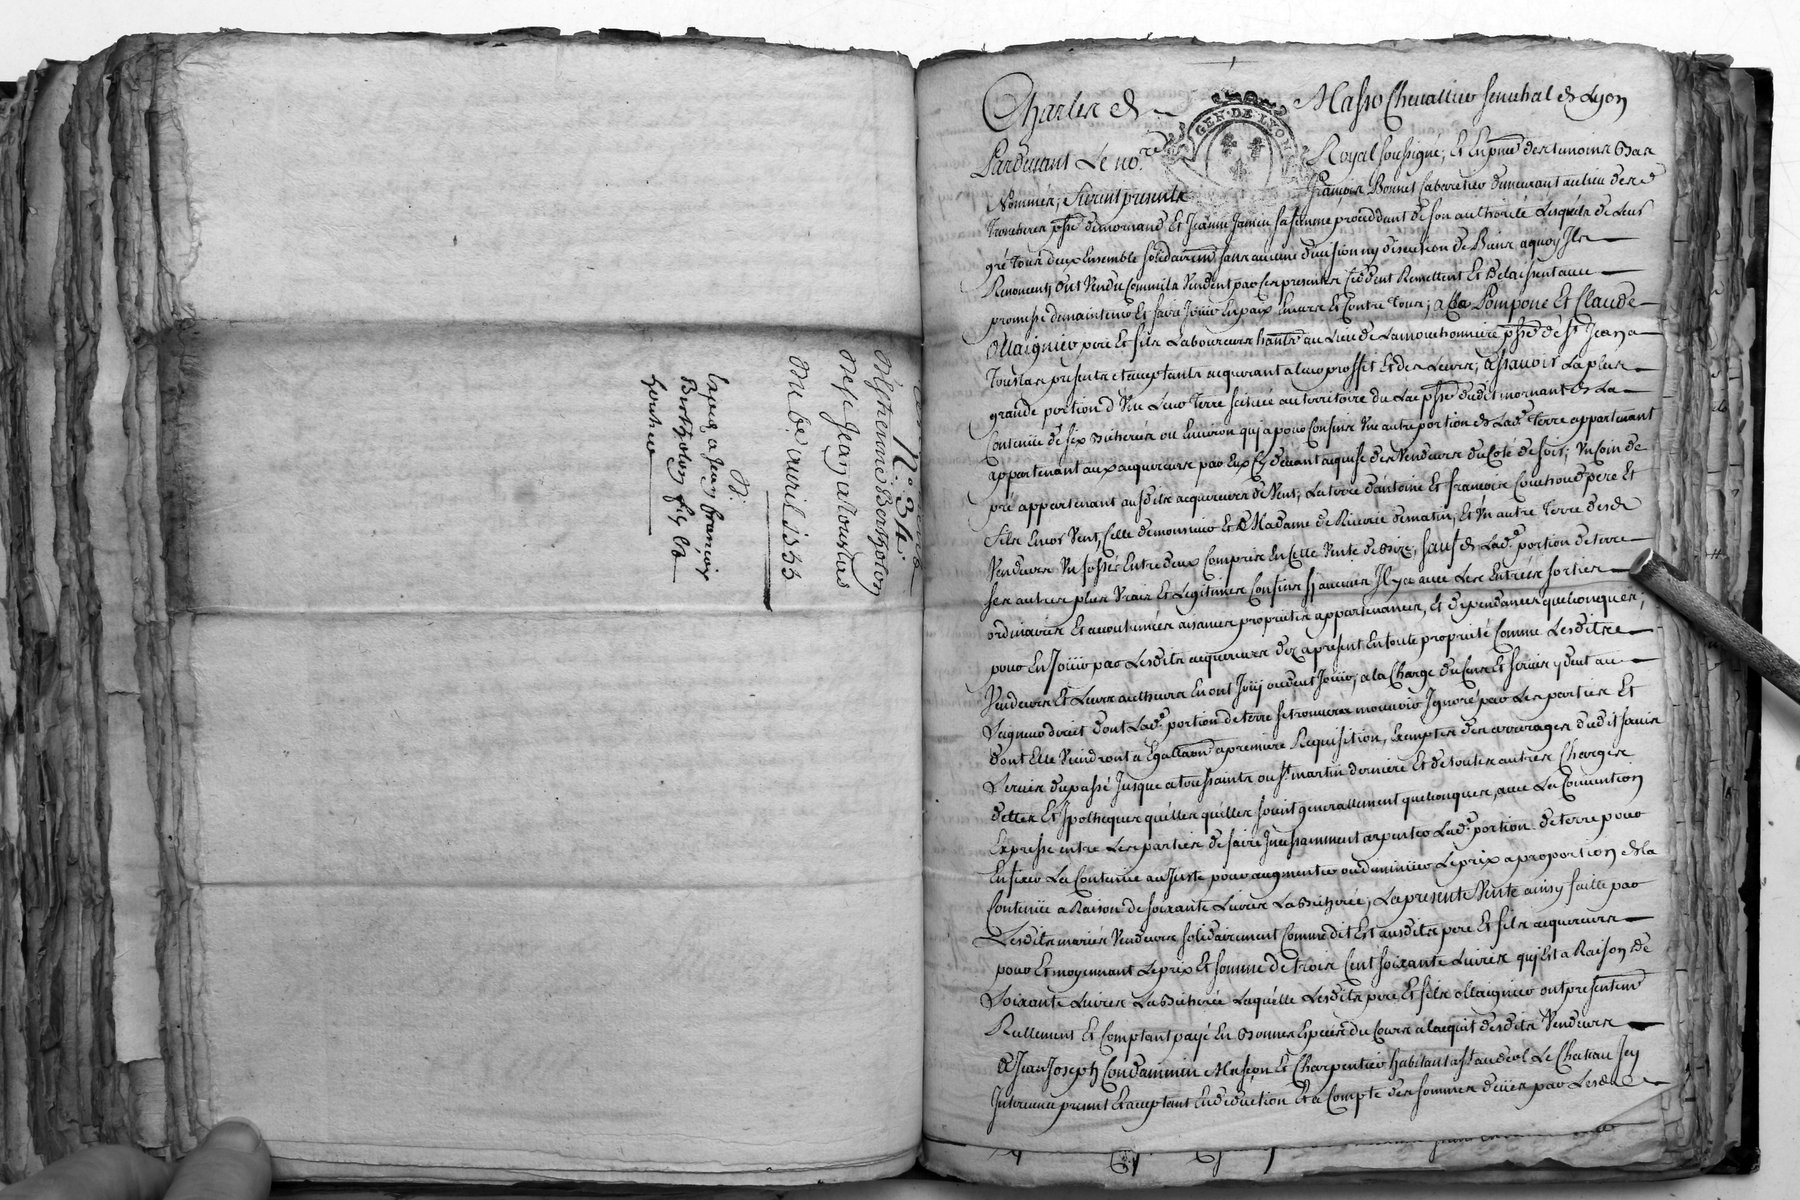 N.° 34
Melsthennie Bertholon
Jean a Toustas
avril 1733
Exped a Jean françois
Berthollon fils
Charles de Masso Chevallier senechal de Lyon
GEN. DE LYON
Pardevant Le no.re Royal soussigné, Et En pnce des temoins Bas
Nommés, furent presents françois Bonnet Cabaretier demeurant au lieu des
Troncheres psse de mornand Et Jeanne Jamen sa femme procedant de son authorité Lesquels de Leur
gré Tous deux Ensemble solidairemt sans aucune division ny discution de Biens a quoy Ils
Renoncent, ont Vendu Comme ils Vendent par Ces presentes Cedent Remettent Et delaissent avec
promesse de maintenir Et faire Jouir En paix Envers Et Contre Tous, a Pompone Et Claude
Ollaignier pere Et fils Laboureurs hants au Lieu de Lamouchonniere psse de St Jean a
Touslas presents et acceptants acquerant a leur proffit Et des Leurs, a sçavoir La plus
grande portion d'Une Leur Terre scituée au territoire du Lac psse dudit mornant de La
Contenüe de six Bicherées ou Environ qui a pour Confins Une autre portion de Lad.e Terre appartenant
appartenant aux acquereurs par Eux Cy devant acquise des Vendeurs du Coté de soir, Un Coin de
pré appartenant ausdits acquereurs de Vent, La terre d'antoine Et françois Couchoud pere Et
fils Encor Vent, Celle de monnier Et de Madame de Riverie de matin, Et Un autre Terre desd
Vendeurs Un fossés Entre deux Comprise En Celle Vente de Bize, sauf de Lad.e portion de terre
ses autres plus Vrais Et Legitimes Confins si aucuns Il y a avec Les Entrées sorties
ordinaires Et accoutumées aisances proprietés appartenances, Et dependances quelconques,
pour En Jouir par Lesdits acquereurs dez a present En toute proprieté Comme Lesdits
Vendeurs Et Leurs autheurs En ont Joüy ou deut Joüir, a la Charge du Cens Et servis y deut au
Seigneur direct dont Lad.e portion de terre se trouvera mouvoir Ignoré par Les parties Et
dont Elle Viendront a Egallaon a premiere Requisition, Exemptes des arrerages dudit servis
Servis du passé Jusque a toussaints ou St martin derniere Et de toutes autres Charges
dettes Et Ipotheques quelles quelles soient generallement quelconques, avec La Convention
Expresse entre Les parties de faire Incessamment arpenter Lad.e portion de terre pour
En fixer La Contenüe au Juste, pour augmenter ou diminuer Le prix a proportion de la
Contenüe a Raison de soixante Livres La Bicherée, La presente Vente ainsy faitte par
Lesdits mariés Vendeurs solidairement Comme dit Est ausdits pere Et fils acquereurs
pour Et moyennant Le prix Et somme de trois Cent soixante Livres qui Est a Raison de
Soixante Livres La Bicherée Laquelle Lesdits pere Et fils ollaignier ont presentemt
Reellement Et Comptant payé En Bonnes Especes du Cours a lacquit desdits Vendeurs
a Jean Joseph Condaminin Masson Et Charpentier habitant a St andéol Le Chateau Icy
Intervenu present Et acceptant En deduction Et a Compte des sommes deües par Lesd